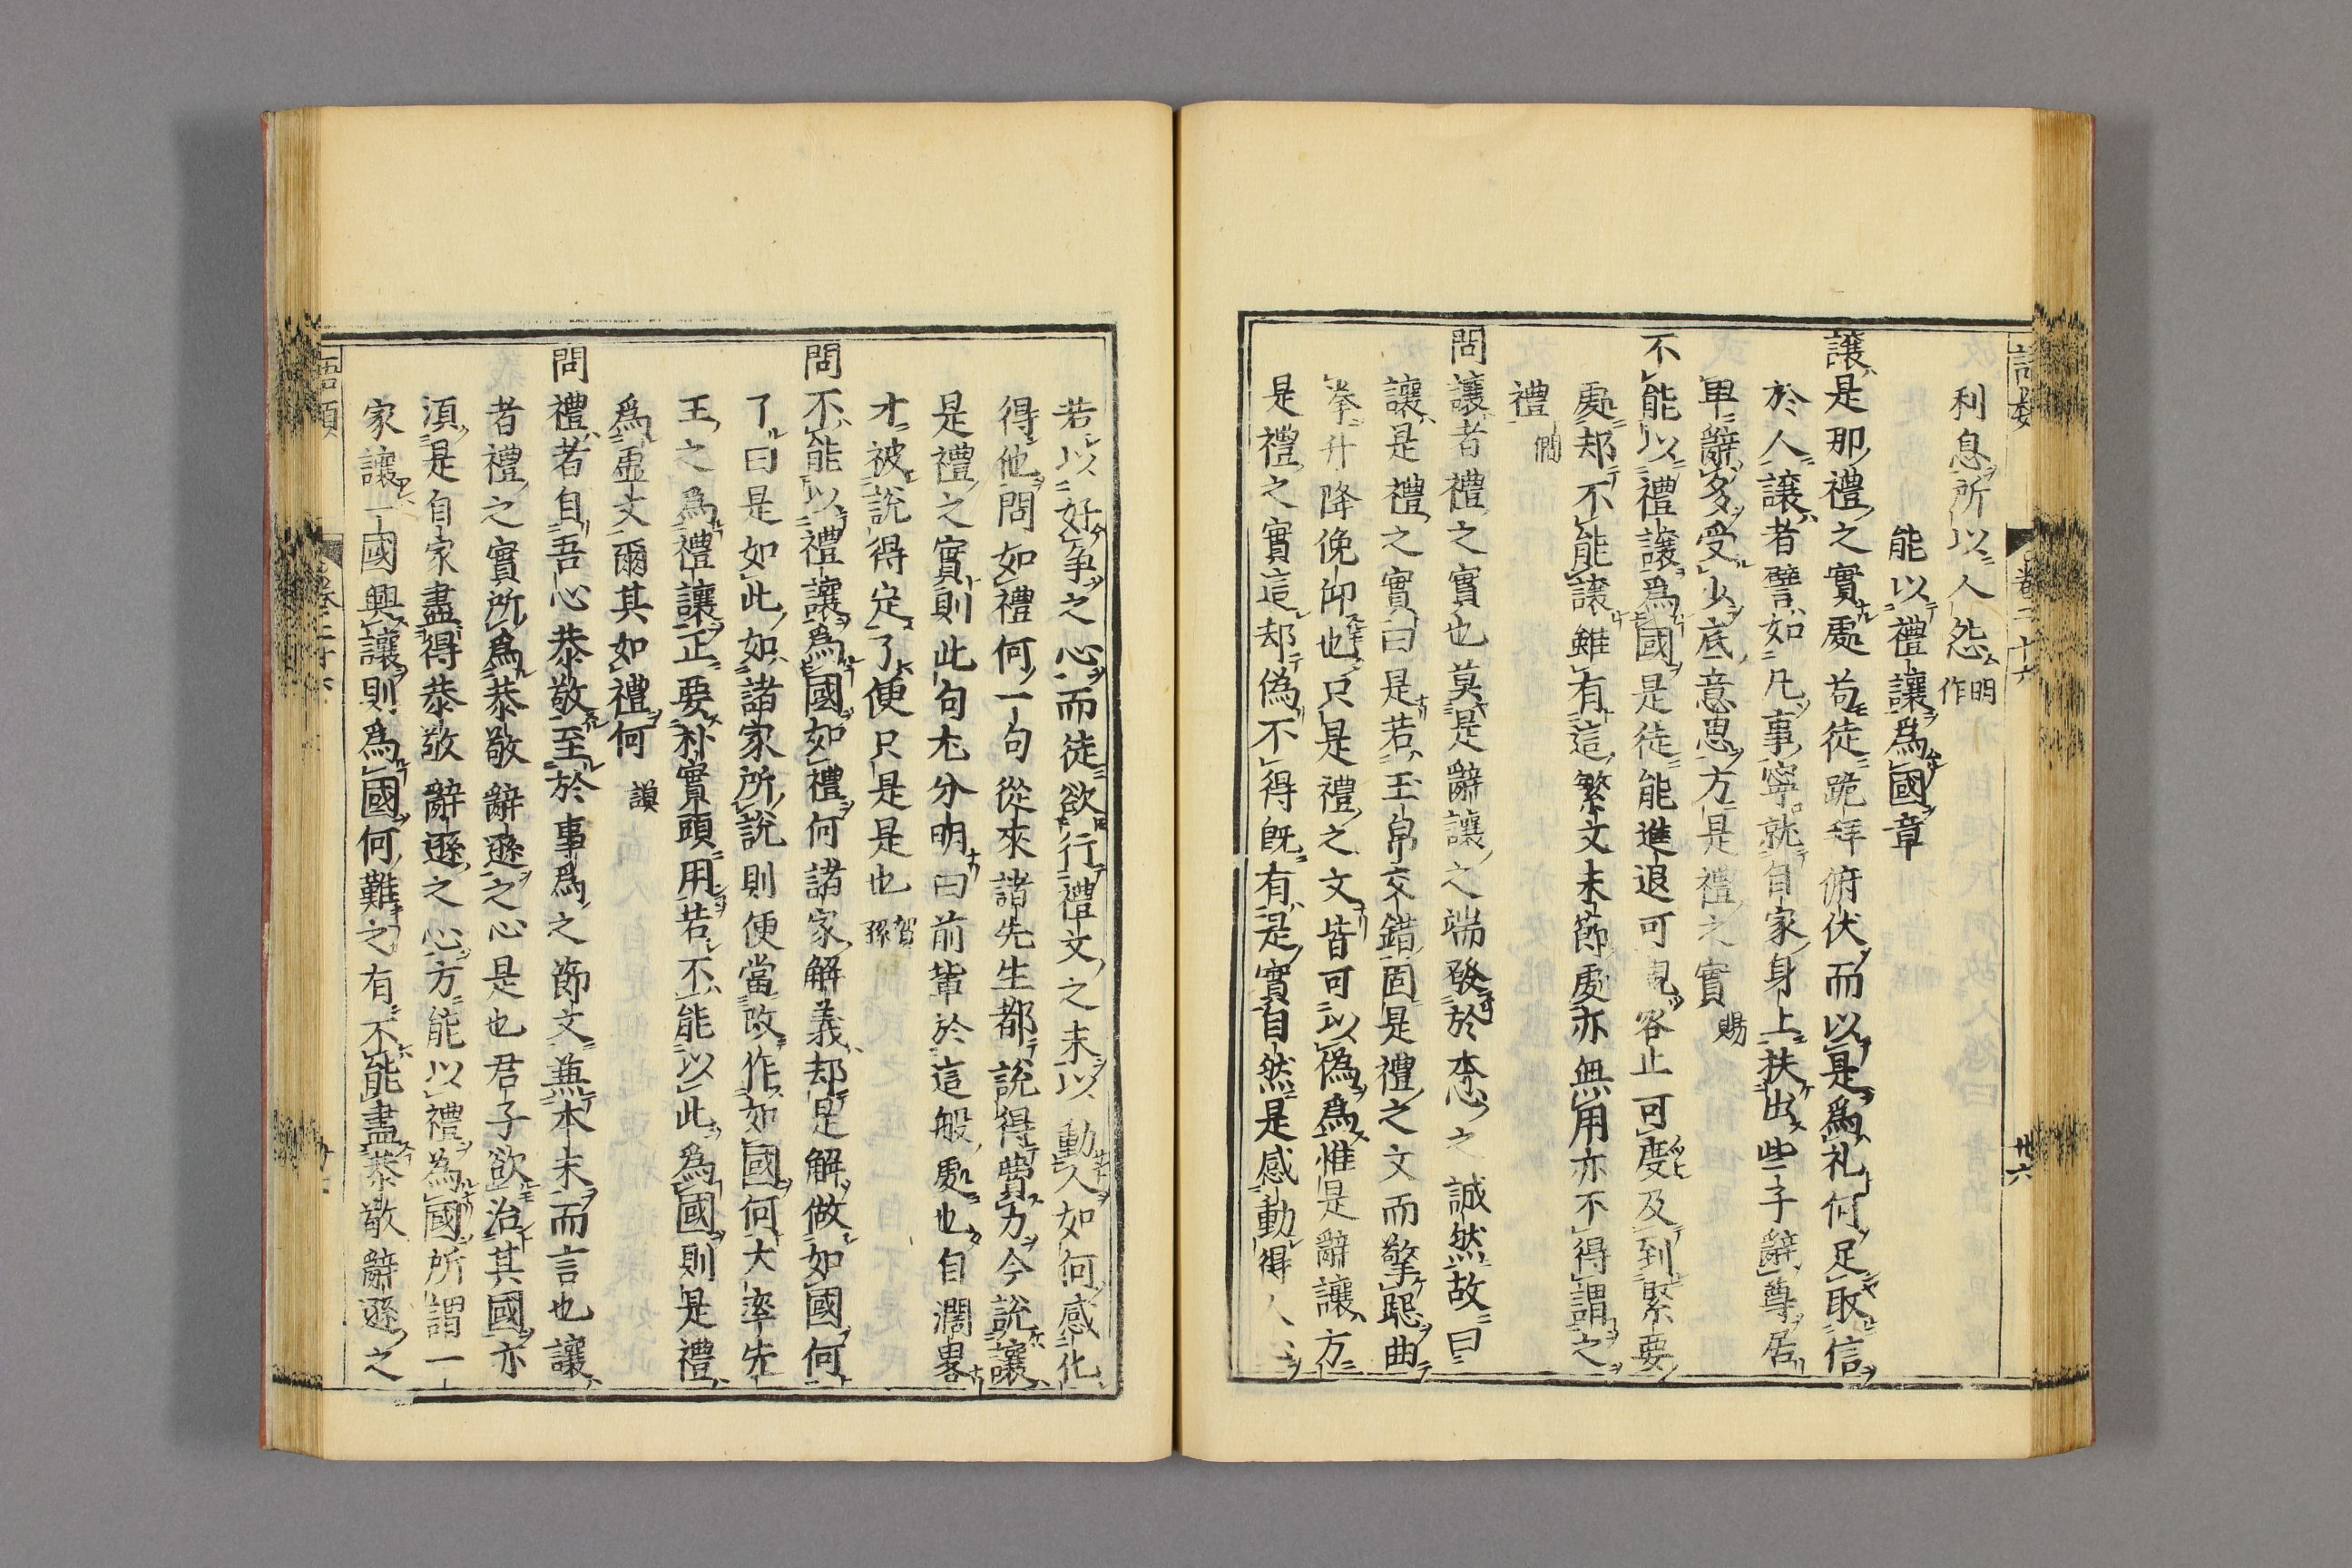 利息所以人怨 明作
能以禮讓爲國章
讓是那禮之實處苟徒跪拜俯伏而以是爲礼何足取信
於人讓者譬如凡事寧就自家身上扶出些子辭尊居
卑辭多受少底意思方是禮之實 賜
不能以禮讓爲國是徒能進退可觀容止可度及到緊要
處却不能讓雖有這繁文末節處亦無用亦不得謂之
禮 僩
問讓者禮之實也莫是辭讓之端發於本心之誠然故曰
讓是禮之實曰是若玉帛交錯固是禮之文而擎跽曲
拳升降俛仰也只是禮之文皆可以偽爲惟是辭讓方
是禮之實這却偽不得既有是實自然是感動得人心
若以好争之心而徒欲行禮文之末以動人如何感化
得他問如禮何一句從來諸先生都說得費力今說讓
是禮之實則此句尤分明曰前輩於這般處也自濶畧
才被說得定了便只是是也 賀孫
問不能以禮讓爲國如禮何諸家解義却是解做如國何
了曰是如此如諸家所說則便當改作如國何大率先
王之爲禮讓正要朴實頭用若不能以此爲國則是禮
爲虛文爾其如禮何 謨
問禮者自吾心恭敬至於事爲之節文兼本末而言也讓
者禮之實所爲恭敬辭遜之心是也君子欲治其國亦
須是自家盡得恭敬辭遜之心方能以禮為國所謂一
家讓一國興讓則爲國何難之有不能盡恭敬辭遜之
語類
卷二十六
廿六